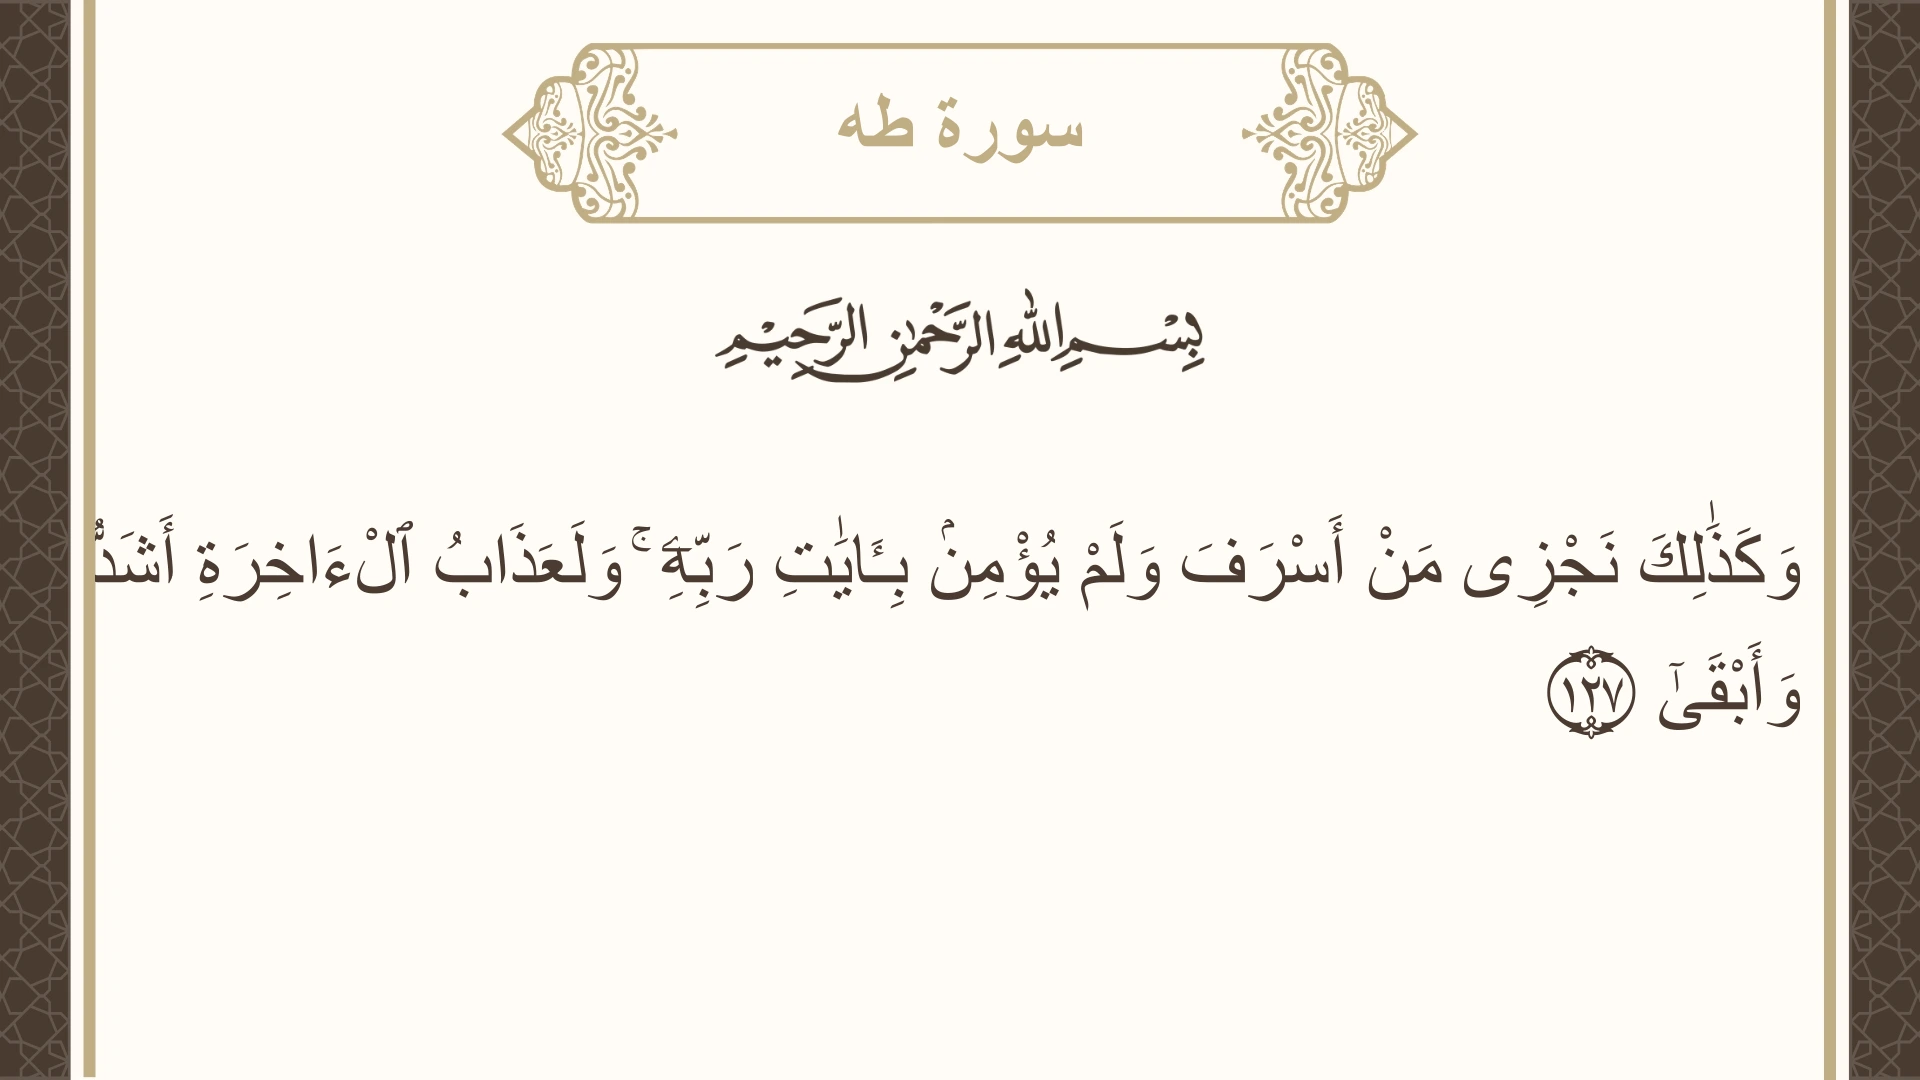 سورة طه
بِسْمِ اللهِ الرَّحْمٰنِ الرَّحِيْمِ
وَكَذَٰلِكَ نَجْزِى مَنْ أَسْرَفَ وَلَمْ يُؤْمِنۢ بِـَٔايَٰتِ رَبِّهِۦ ۚ وَلَعَذَابُ ٱلْءَاخِرَةِ أَشَدُّ
وَأَبْقَىٰٓ ١٢٧